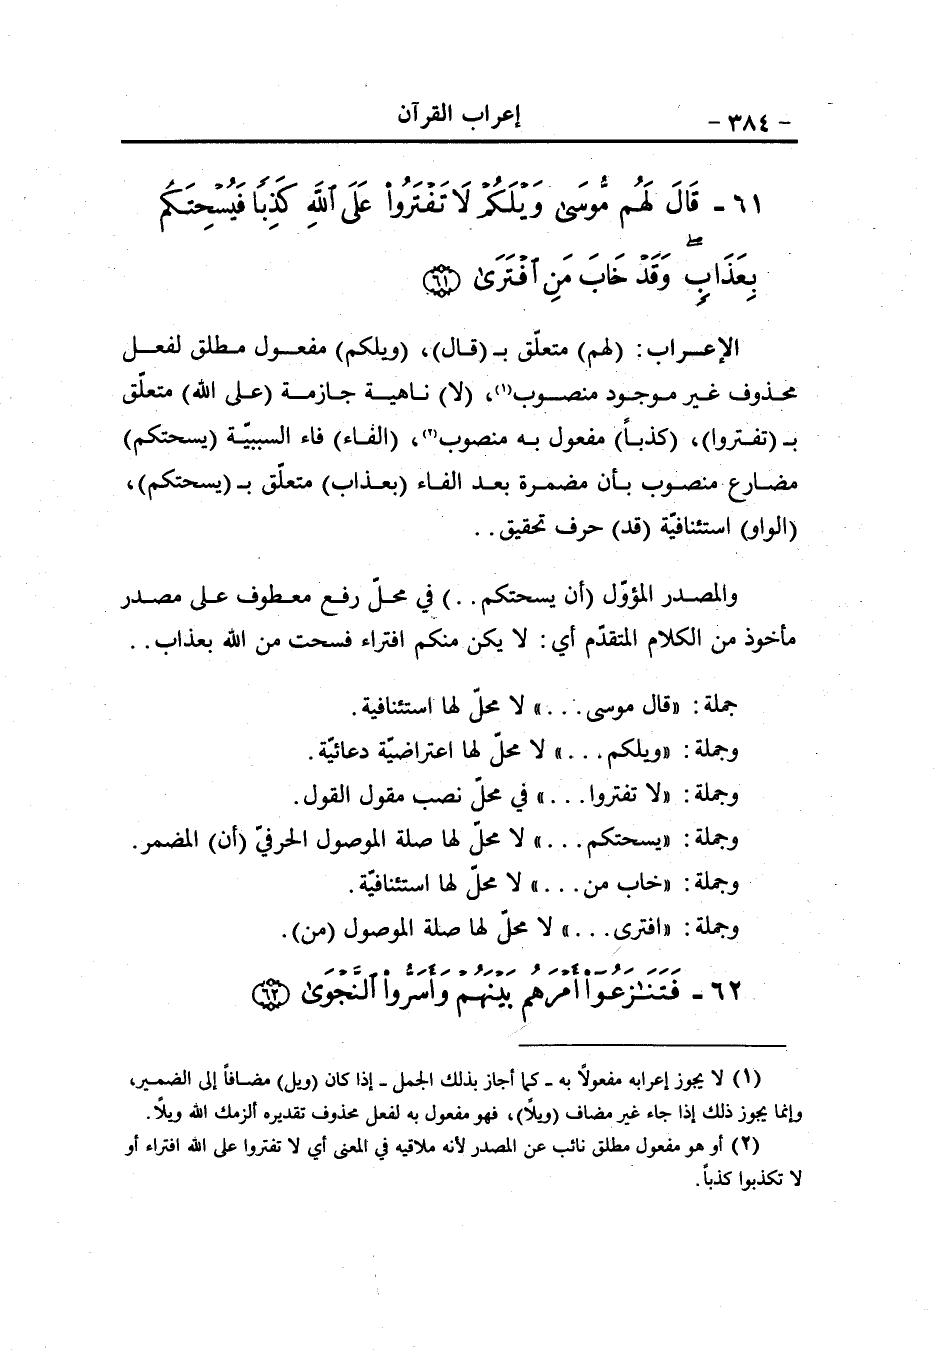 - ٣٨٤ - إعراب القرآن
٦١ - قَالَ لَهُم مُّوسَىٰ وَيْلَكُمْ لَا تَفْتَرُوا۟ عَلَى ٱللَّهِ كَذِبًا فَيُسْحِتَكُم
بِعَذَابٍۢ ۖ وَقَدْ خَابَ مَنِ ٱفْتَرَىٰ ﴿٦١﴾
الإعـراب: (لهم) متعلّق بـ (قـال)، (ويلكم) مفعـول مـطلق لفعـل
محـذوف غـير مـوجـود منصـوب(١)، (لا) نـاهيـة جـازمـة (عـلى الله) متعلّق
بـ (تفـتروا)، (كذبـاً) مفعول بـه منصوب(٢)، (الفـاء) فاء السببيّـة (يسحتكم)
مضـارع منصـوب بـأن مضمـرة بعـد الفـاء (بعـذاب) متعلّق بـ (يسحتكم)،
(الواو) استئنافيّة (قد) حرف تحقيق..
والمصـدر المؤوّل (أن يسحتكم..) في محـلّ رفـع معـطوف عـلى مصـدر
مأخوذ من الكلام المتقدّم أي: لا يكن منكم افتراء فسحت من الله بعذاب..
جملة: «قال موسى...» لا محلّ لها استئنافية.
وجملة: «ويلكم...» لا محلّ لها اعتراضيّة دعائيّة.
وجملة: «لا تفتروا...» في محلّ نصب مقول القول.
وجملة: «يسحتكم...» لا محلّ لها صلة الموصول الحرفيّ (أن) المضمر.
وجملة: «خاب من...» لا محلّ لها استئنافيّة.
وجملة: «افترى...» لا محلّ لها صلة الموصول (من).
٦٢ - فَتَنَـٰزَعُوٓا۟ أَمْرَهُم بَيْنَهُمْ وَأَسَرُّوا۟ ٱلنَّجْوَىٰ ﴿٦٢﴾
(١) لا يجوز إعرابه مفعولًا به ـ كما أجاز بذلك الجمل ـ إذا كان (ويل) مضـافاً إلى الضمـير،
وإنما يجوز ذلك إذا جاء غير مضاف (ويلًا)، فهو مفعول به لفعل محذوف تقديره ألزمك الله ويلًا.
(٢) أو هو مفعول مطلق نائب عن المصدر لأنه ملاقيه في المعنى أي لا تفتروا على الله افتراء أو
لا تكذبوا كذباً.